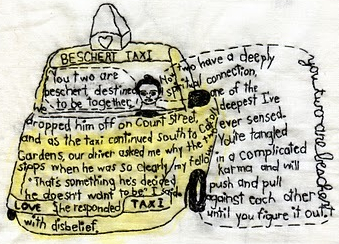 BESCHERT TAXI
"You two are
beschert, destined
to be together,"
He
dropped him off on Court Street,
and as the taxi continued south to Carroll
Gardens, our driver asked me why the two
stops when he was so clearly my fella.
"That's something he's decided
he doesn't want to be" I said.
LOVE
TAXI
he responded
with disbelief.
"You two have a deeply
spiritual connection,
one of the
deepest I've
ever sensed.
You're tangled
in a complicated
karma and will
push and pull
against each other
until you figure it out."
you two are beschert